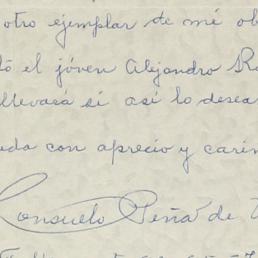 otro ejemplar de mé ob
tó el jóven Alejandro Ro
llevará si así lo desea
eda con aprecio y cariñ
Consuelo Peña de